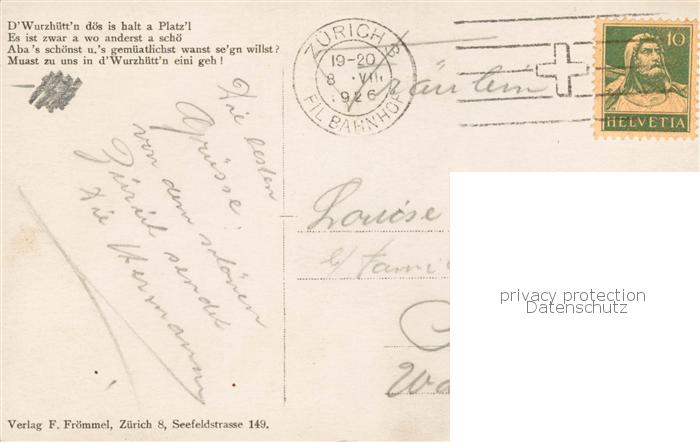 D'Wurzhütt'n dös is halt a Platz'l
Es ist zwar a wo anderst a schö
Aba's schönst u.'s gemüatlichst wanst se'gn willst?
Muast zu uns in d'Wurzhütt'n eini geh!
ZÜRICH 8
19-20
8. VII.
1926
FIL. BAHNHOF
10
HELVETIA
Fräulein
Louise
c/ Famil
Die besten
Grüsse
von dem schönen
Zürich sendet
Die Hermann
privacy protection
Datenschutz
Verlag F. Frömmel, Zürich 8, Seefeldstrasse 149.